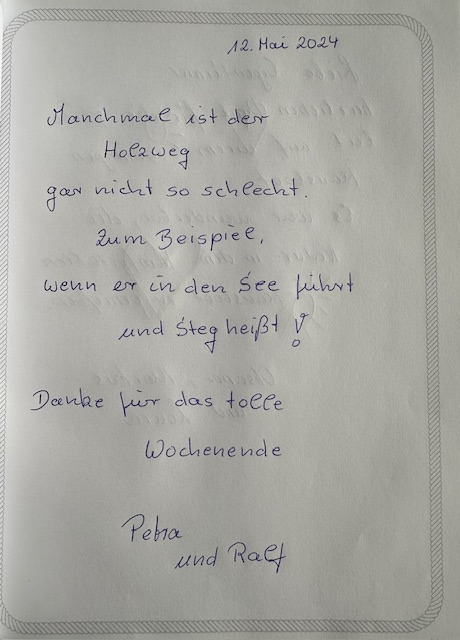 12. Mai 2024
Manchmal ist der
Holzweg
gar nicht so schlecht.
Zum Beispiel,
wenn er in den See führt
und Steg heißt!
Danke für das tolle
Wochenende
Petra
und Ralf